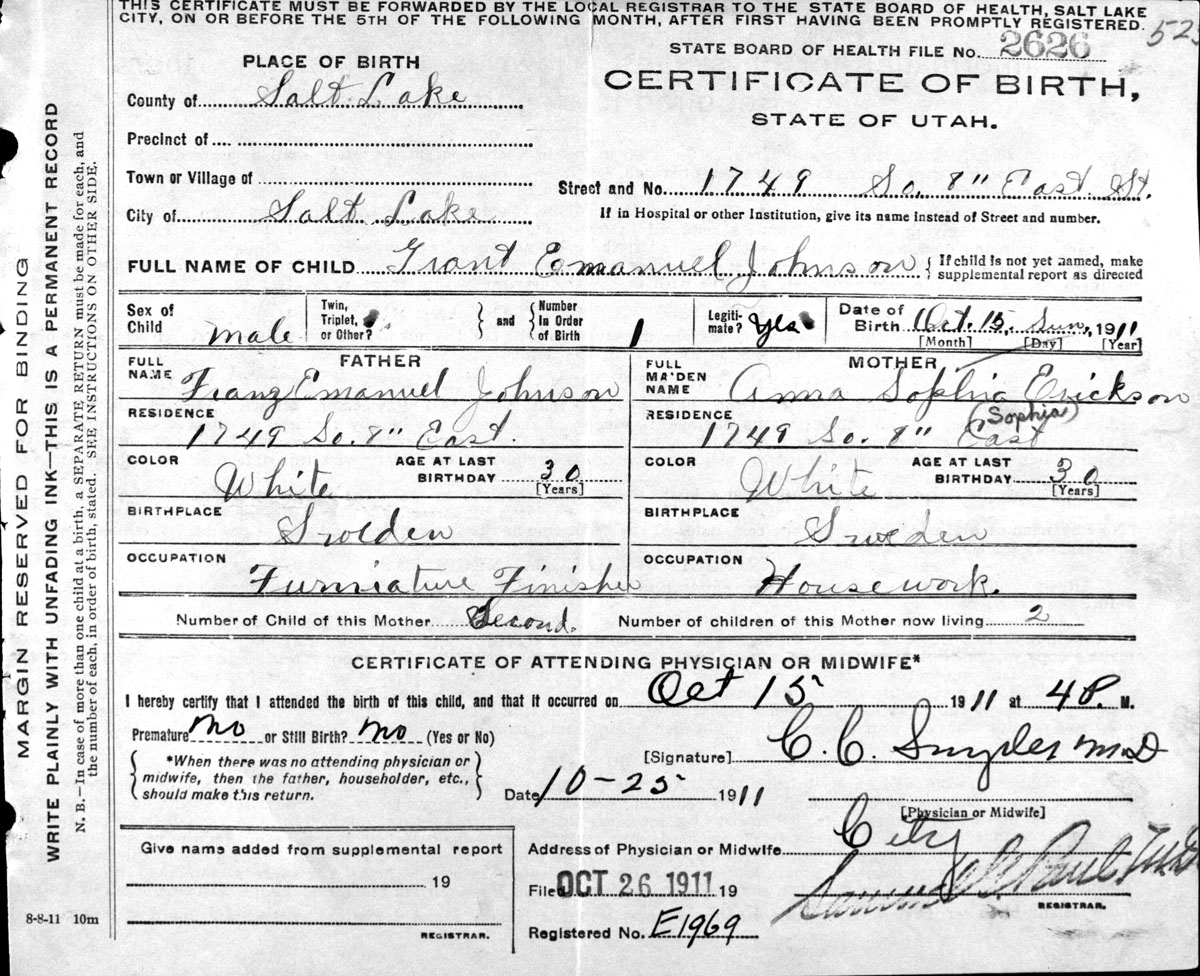 THIS CERTIFICATE MUST BE FORWARDED BY THE LOCAL REGISTRAR TO THE STATE BOARD OF HEALTH, SALT LAKE
CITY, ON OR BEFORE THE 5TH OF THE FOLLOWING MONTH, AFTER FIRST HAVING BEEN PROMPTLY REGISTERED.
STATE BOARD OF HEALTH FILE No. 2626
CERTIFICATE OF BIRTH,
STATE OF UTAH.
PLACE OF BIRTH
County of Salt Lake
Precinct of
Town or Village of
Street and No. 1749 So. 8" East St.
City of Salt Lake
If in Hospital or other Institution, give its name instead of Street and number.
FULL NAME OF CHILD Grant Emanuel Johnson { If child is not yet named, make
supplemental report as directed
Sex of Child male
Twin, Triplet, or Other?
and Number In Order of Birth 1
Legiti-mate? Yes
Date of Birth Oct. 15. Sun, 1911
[Month] [Day] [Year]
FATHER
FULL NAME Franz Emanuel Johnson
RESIDENCE
1749 So. 8" East.
COLOR White AGE AT LAST BIRTHDAY 30
[Years]
BIRTHPLACE
Sweden
OCCUPATION
Furniature Finisher
MOTHER
FULL MA'DEN NAME Anna Sophia Erickson
(Sophia)
RESIDENCE
1749 So. 8" East
COLOR White AGE AT LAST BIRTHDAY 30
[Years]
BIRTHPLACE
Sweden
OCCUPATION
Housework.
Number of Child of this Mother Second. Number of children of this Mother now living 2
CERTIFICATE OF ATTENDING PHYSICIAN OR MIDWIFE*
I hereby certify that I attended the birth of this child, and that it occurred on Oct 15 1911 at 4 P. M.
Premature No or Still Birth? No (Yes or No)
[Signature] C. C. Snyder MD
*When there was no attending physician or
midwife, then the father, householder, etc.,
should make this return.
Date 10-25 1911
[Physician or Midwife]
Address of Physician or Midwife City
Give name added from supplemental report
19
REGISTRAR.
Filed OCT 26 1911 19
Samuel G. Paul, M.D.
REGISTRAR.
Registered No. E1969
8-8-11 10m
MARGIN RESERVED FOR BINDING
WRITE PLAINLY WITH UNFADING INK—THIS IS A PERMANENT RECORD
N. B.—In case of more than one child at a birth, a SEPARATE RETURN must be made for each, and
the number of each, in order of birth, stated. SEE INSTRUCTIONS ON OTHER SIDE.